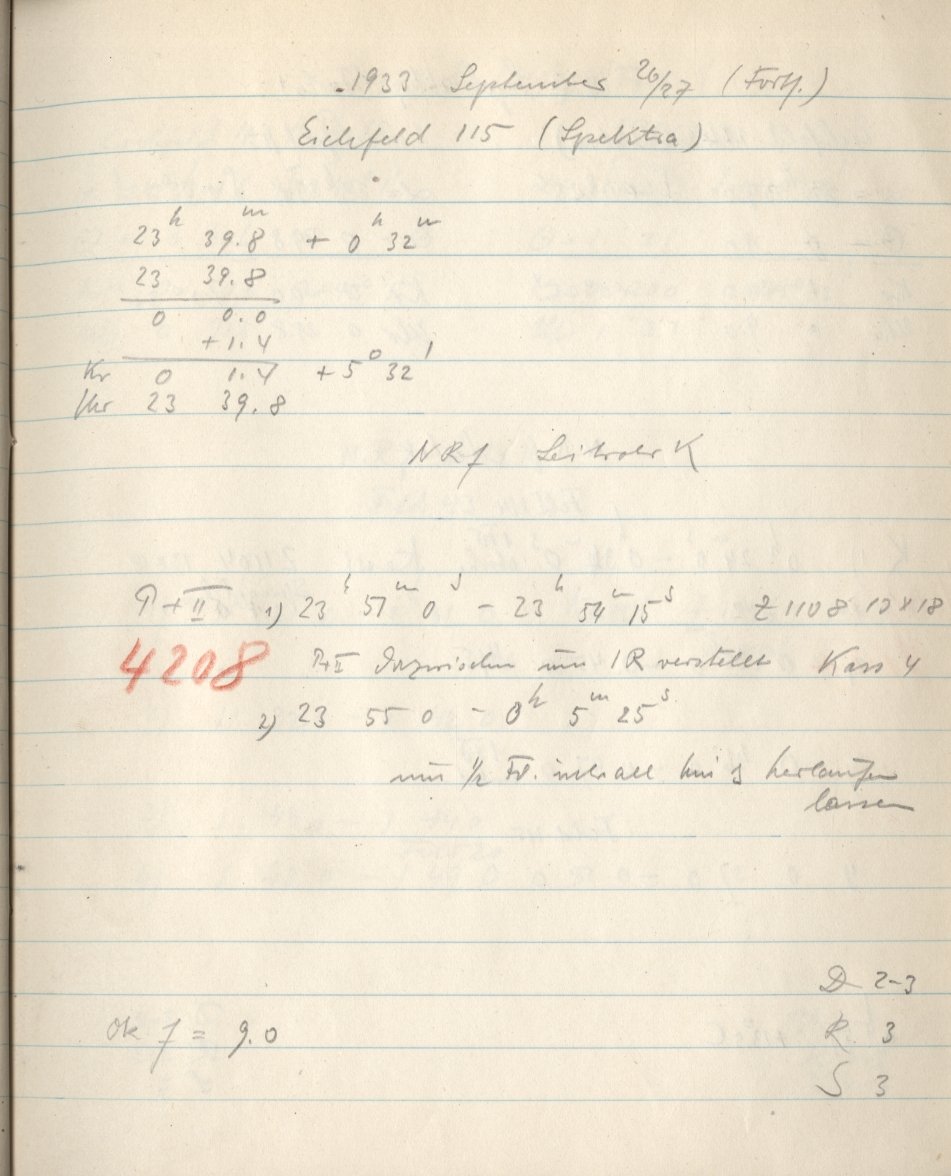 1933 September 26/27 (Forts.)
Eichfeld 115 (Spektra)
23h 39.8m + 0h 32m
23 39.8
0 0.0
+1.4
Kr 0 1.4 +5° 32'
Uhr 23 39.8
NRf Leitrohr K
P+II 1) 23h 51m 0s - 23h 54m 15s Z 1108 12x18
4208 P+II Inzwischen um 1R verstellt Kass 4
2) 23 55 0 - 0h 5m 25s
um 1/2 hin & herlaufen
lassen
D 2-3
Ok f = 9.0 R 3
S 3